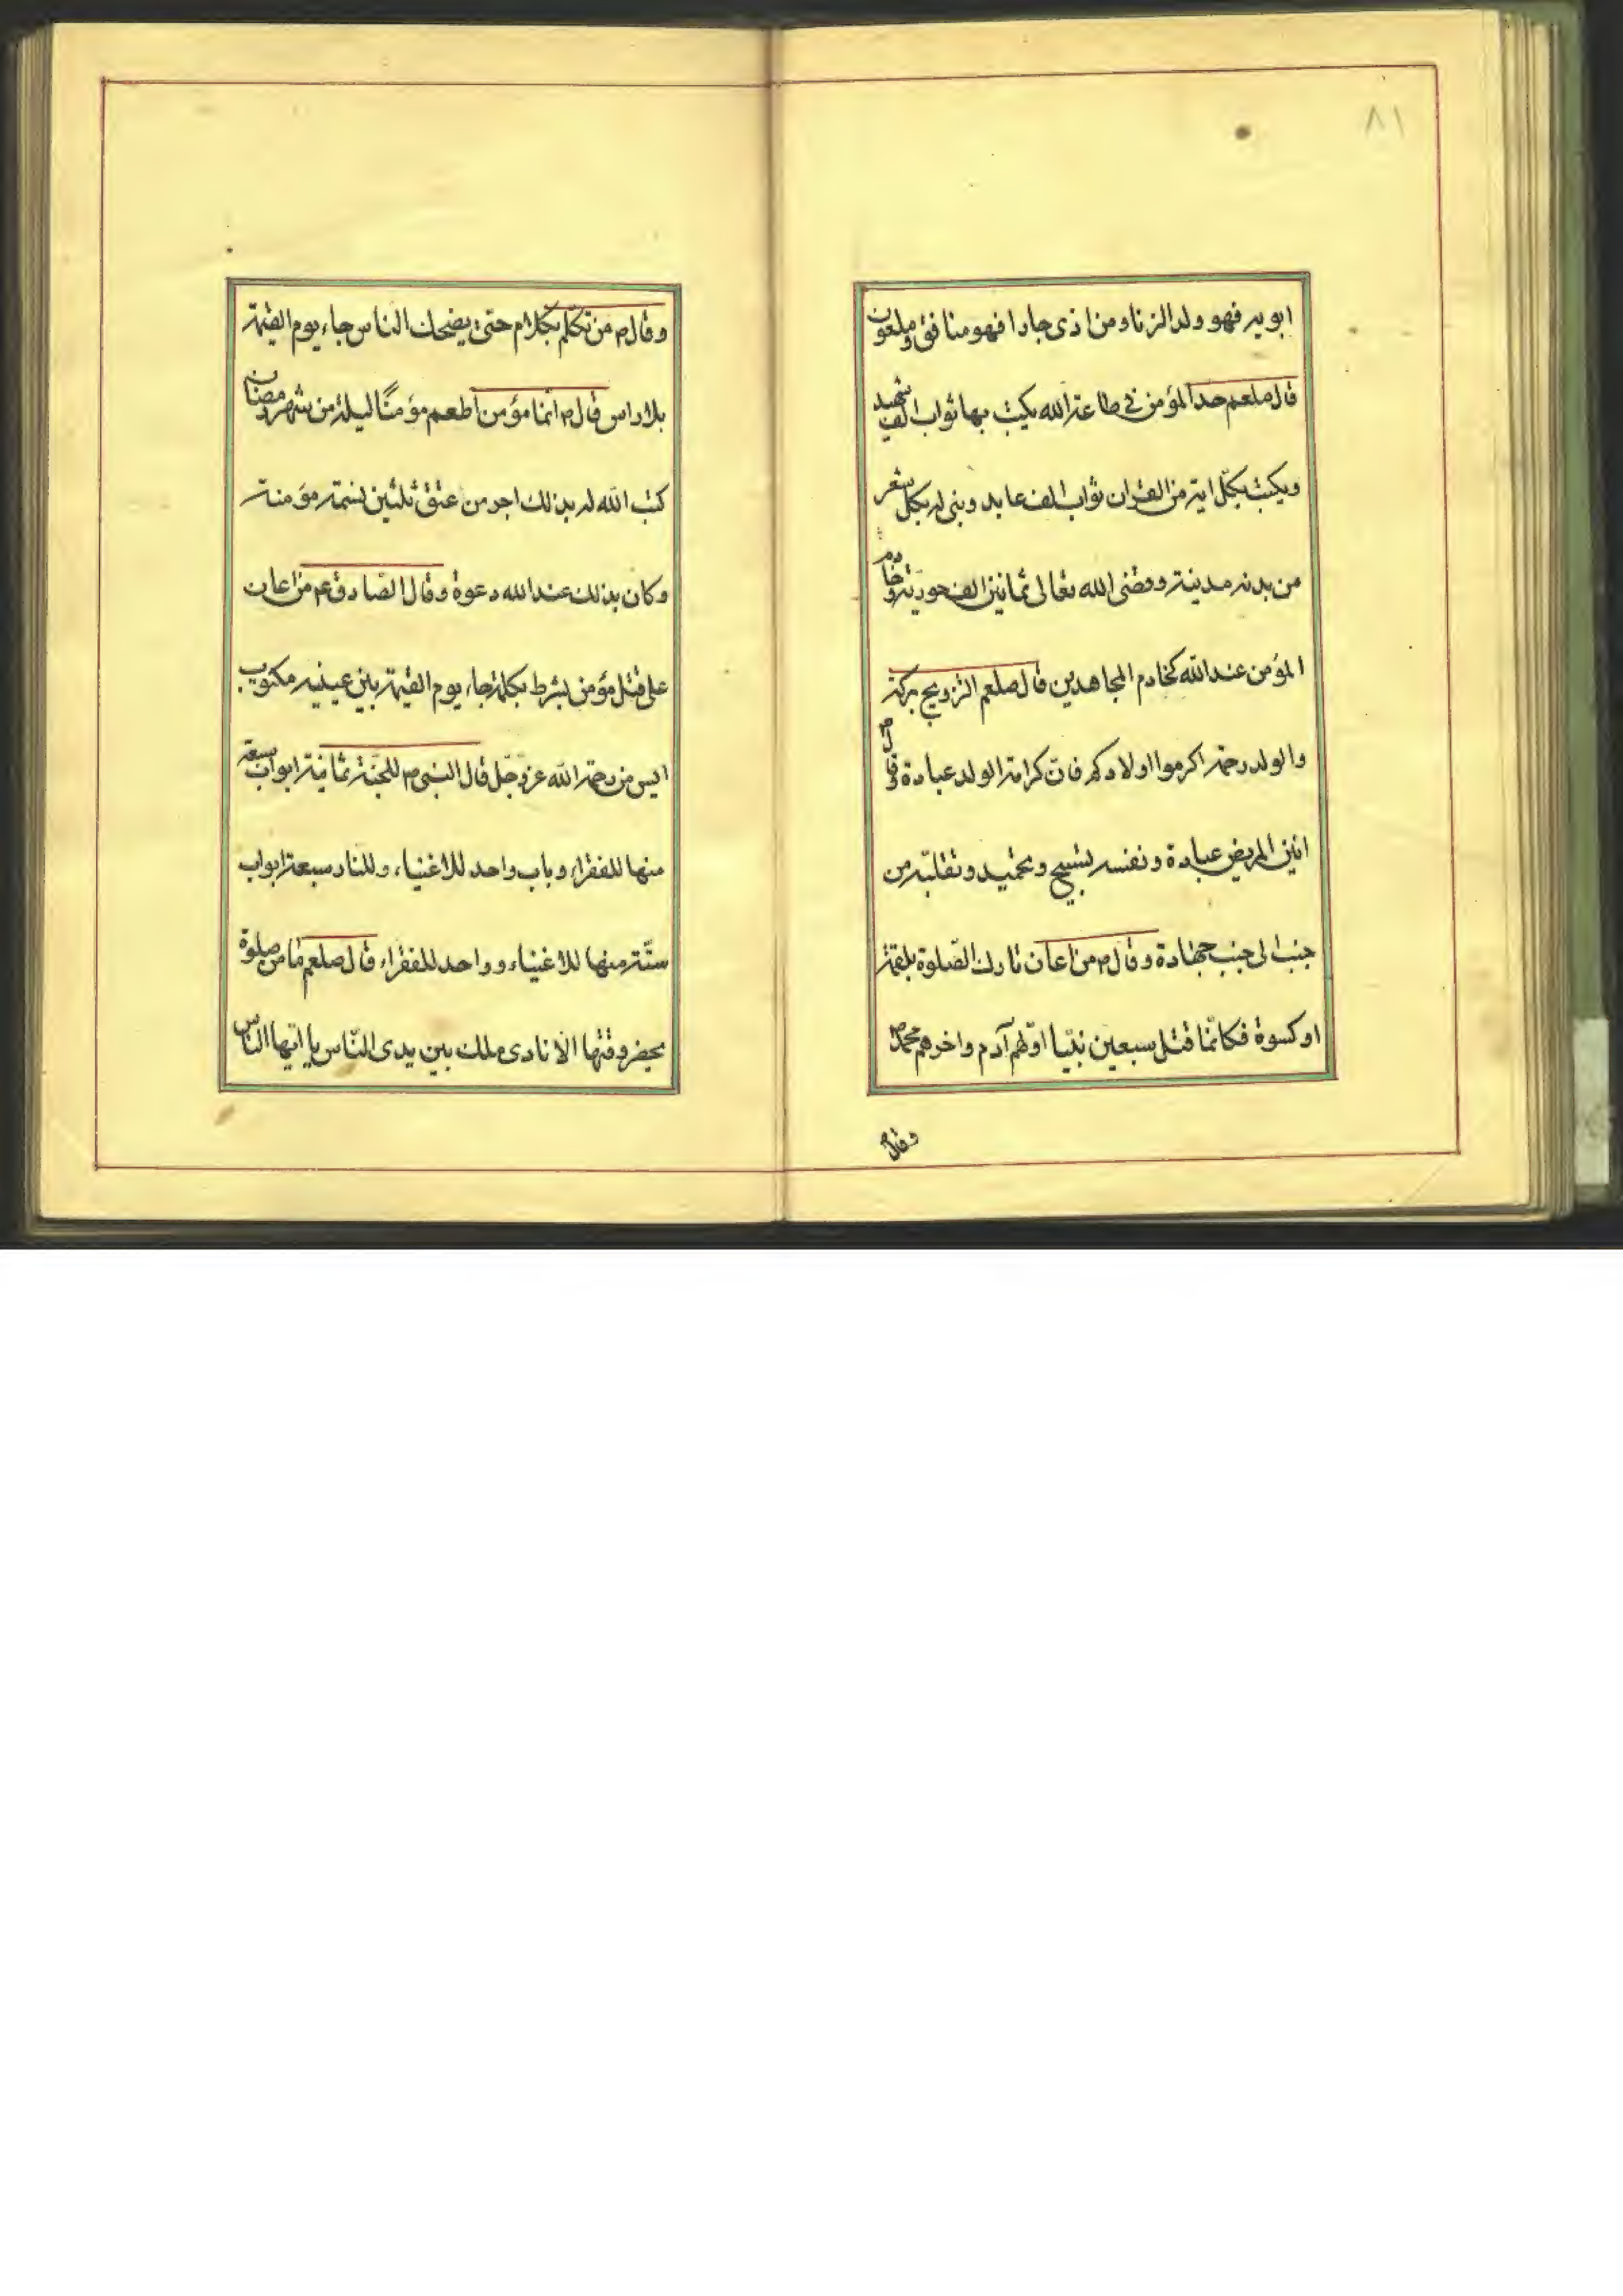 ٨١
ابويه فهو ولد الزنا ومن اذى جارا فهو منافق وملعون
قال صلعم حد المؤمن فى طاعة الله يكتب بها ثواب الف شهيد
ويكتب بكل اية من القران ثواب الف عابد وبنى له بكل شعر
من بدنه مدينة وقضى الله تعالى ثمانين الف حورية وخادم
المؤمن عند الله كخادم المجاهدين قال صلعم التزويج بركة
والولد رحمة اكرموا اولادكم فان كرامة الولد عبادة وقال ص
انين المريض عبادة ونفسه تسبيح وتحميد وتقلبه من
جنب الى جنب جهادة وقال ص من اعان تارك الصلوة بلقمة
او كسوة فكانما قتل سبعين نبيا اولهم آدم واخرهم محمد ص
وقال ص
وقال ص من تكلم بكلام حتى يضحك الناس جاء يوم القيمة
بلا راس قال ص انما مؤمن اطعم مؤمنًا ليلة من شهر رمضان
كتب الله له بذلك اجر من عتق ثلثين نسمة مؤمنة
وكان بذلك عند الله دعوة وقال الصادق ع من اعان
على قتل مؤمن بشرط بكلمة جاء يوم القيمة بين عينيه مكتوب
ايس من رحمة الله عز وجل قال النبى ص للجنة ثمانية ابواب سبعة
منها للفقراء وباب واحد للاغنياء وللنار سبعة ابواب
ستة منها للاغنياء وواحد للفقراء قال صلعم ما من صلوة
يحضر وقتها الا نادى ملك بين يدى الناس يا ايها الناس